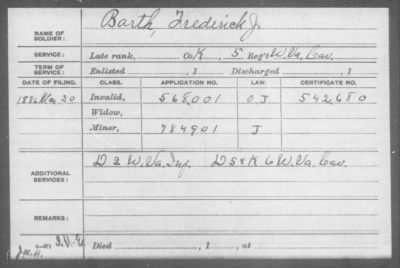 NAME OF SOLDIER: Barth, Frederick J.
SERVICE: Late rank, Co. K, 5 Reg't W. Va. Cav.
TERM OF SERVICE: Enlisted , 1 Discharged , 1
DATE OF FILING. CLASS. APPLICATION NO. LAW. CERTIFICATE NO.
1886 20 Invalid, 568001 O J 542,680
Widow,
Minor, 784901 J
ADDITIONAL SERVICES: D 2 W. Va. Inf. D 5 & K 6 W. Va. Cav.
REMARKS:
Died , 1 , at